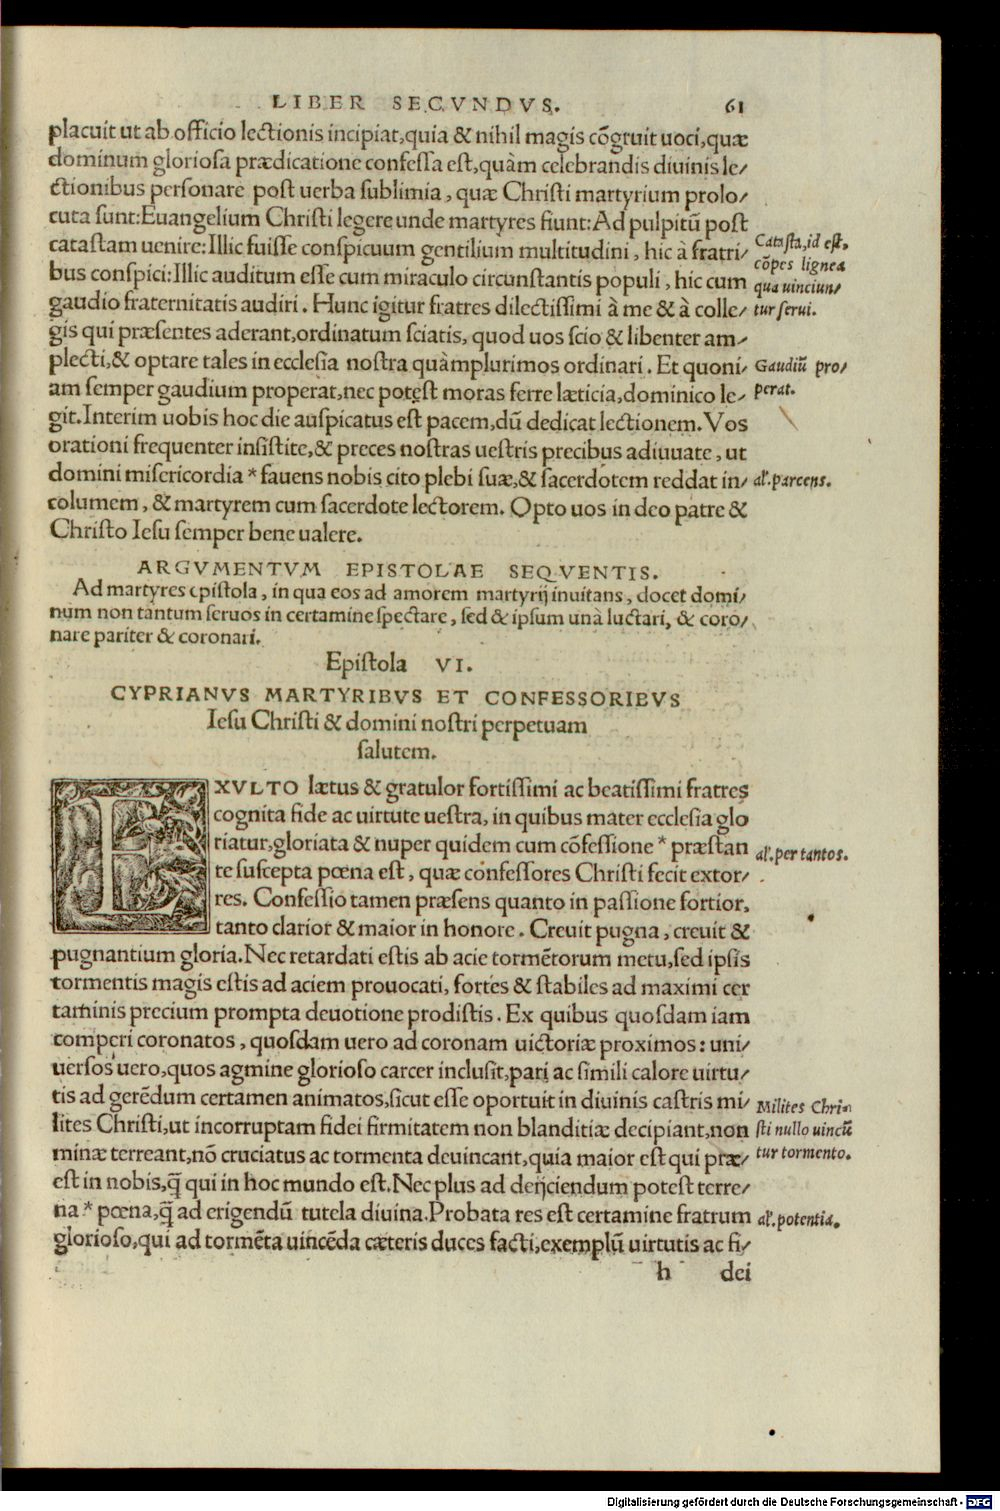 LIBER SECVNDVS. 61
placuit ut ab officio lectionis incipiat,quia & nihil magis cõgruit uoci,quæ
dominum gloriosa prædicatione confessa est,quàm celebrandis diuinis le/
ctionibus personare post uerba sublimia, quæ Christi martyrium prolo/
cuta sunt:Euangelium Christi legere unde martyres fiunt:Ad pulpitũ post
catastam uenire:Illic fuisse conspicuum gentilium multitudini, hic à fratri/
Catasta,id est,
cõpes lignea
bus conspici:Illic auditum esse cum miraculo circunstantis populi, hic cum
qua uinciun/
gaudio fraternitatis audiri. Hunc igitur fratres dilectissimi à me & à colle/
tur serui.
gis qui præsentes aderant,ordinatum sciatis, quod uos scio & libenter am/
plecti,& optare tales in ecclesia nostra quàmplurimos ordinari. Et quoni/
Gaudiũ pro/
am semper gaudium properat,nec potest moras ferre læticia,dominico le/
perat.
git.Interim uobis hoc die auspicatus est pacem,dũ dedicat lectionem. Vos
orationi frequenter insistite,& preces nostras uestris precibus adiuuate, ut
domini misericordia * fauens nobis cito plebi suæ,& sacerdotem reddat in/
al'.parcens.
columem, & martyrem cum sacerdote lectorem. Opto uos in deo patre &
Christo Iesu semper bene ualere.
ARGVMENTVM EPISTOLAE SEQVENTIS.
Ad martyres epistola, in qua eos ad amorem martyrij inuitans, docet domi/
num non tantum seruos in certamine spectare, sed & ipsum unà luctari, & coro/
nare pariter & coronari.
Epistola VI.
CYPRIANVS MARTYRIBVS ET CONFESSORIBVS
Iesu Christi & domini nostri perpetuam
salutem.
EXVLTO lætus & gratulor fortissimi ac beatissimi fratres
cognita fide ac uirtute uestra, in quibus mater ecclesia glo
riatur,gloriata & nuper quidem cum cõfessione * præstan
al'.per tantos.
te suscepta pœna est, quæ confessores Christi fecit extor/
res. Confessio tamen præsens quanto in passione fortior,
tanto clarior & maior in honore. Creuit pugna, creuit &
pugnantium gloria.Nec retardati estis ab acie tormẽtorum metu,sed ipsis
tormentis magis estis ad aciem prouocati, fortes & stabiles ad maximi cer
taminis precium prompta deuotione prodistis. Ex quibus quosdam iam
comperi coronatos, quosdam uero ad coronam uictoriæ proximos: uni/
uersos uero,quos agmine glorioso carcer inclusit,pari ac simili calore uirtu/
tis ad gerẽdum certamen animatos,sicut esse oportuit in diuinis castris mi/
Milites Chri-
lites Christi,ut incorruptam fidei firmitatem non blanditiæ decipiant,non
sti nullo uincũ
minæ terreant,nõ cruciatus ac tormenta deuincant,quia maior est qui præ/
tur tormento.
est in nobis,q̃ qui in hoc mundo est.Nec plus ad deijciendum potest terre/
na * pœna,q̃ ad erigendũ tutela diuina.Probata res est certamine fratrum
al'.potentia.
glorioso,qui ad tormẽta uincẽda cæteris duces facti,exemplũ uirtutis ac fi/
h dei
Digitalisierung gefördert durch die Deutsche Forschungsgemeinschaft - DFG